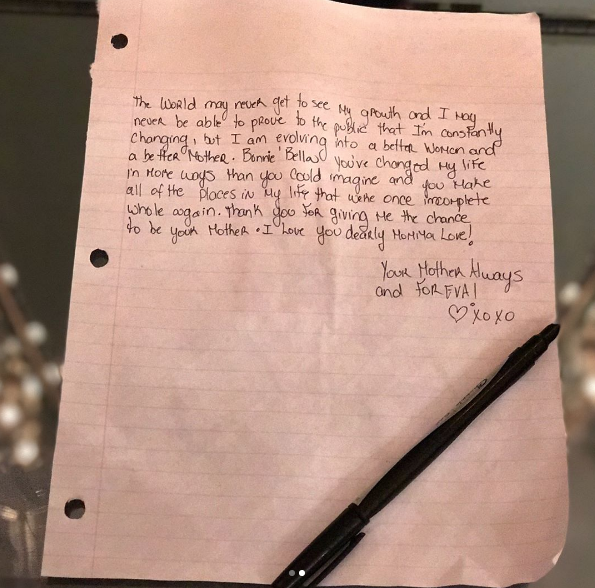 The World may never get to see My growth and I May
never be able to prove to the public that I'm constantly
changing, but I am evolving into a better Woman and
a better Mother. Bonnie Bella, You've changed My life
in More ways than you Could imagine and you Make
all of the Places in My life that were once incomplete
whole again. Thank you for giving Me the chance
to be your Mother. I Love you dearly Momma Love!
Your Mother Always
and FOREVA!
♡ xoxo